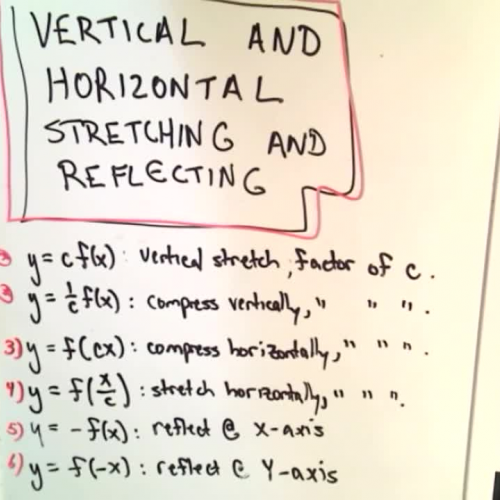 VERTICAL AND
HORIZONTAL
STRETCHING AND
REFLECTING
y = c f(x) : vertical stretch, factor of c.
y = 1/c f(x) : compress vertically, " " ".
3) y = f(cx) : compress horizontally, " " ".
4) y = f(x/c) : stretch horizontally, " " ".
5) y = -f(x) : reflect @ X-axis
6) y = f(-x) : reflect @ Y-axis